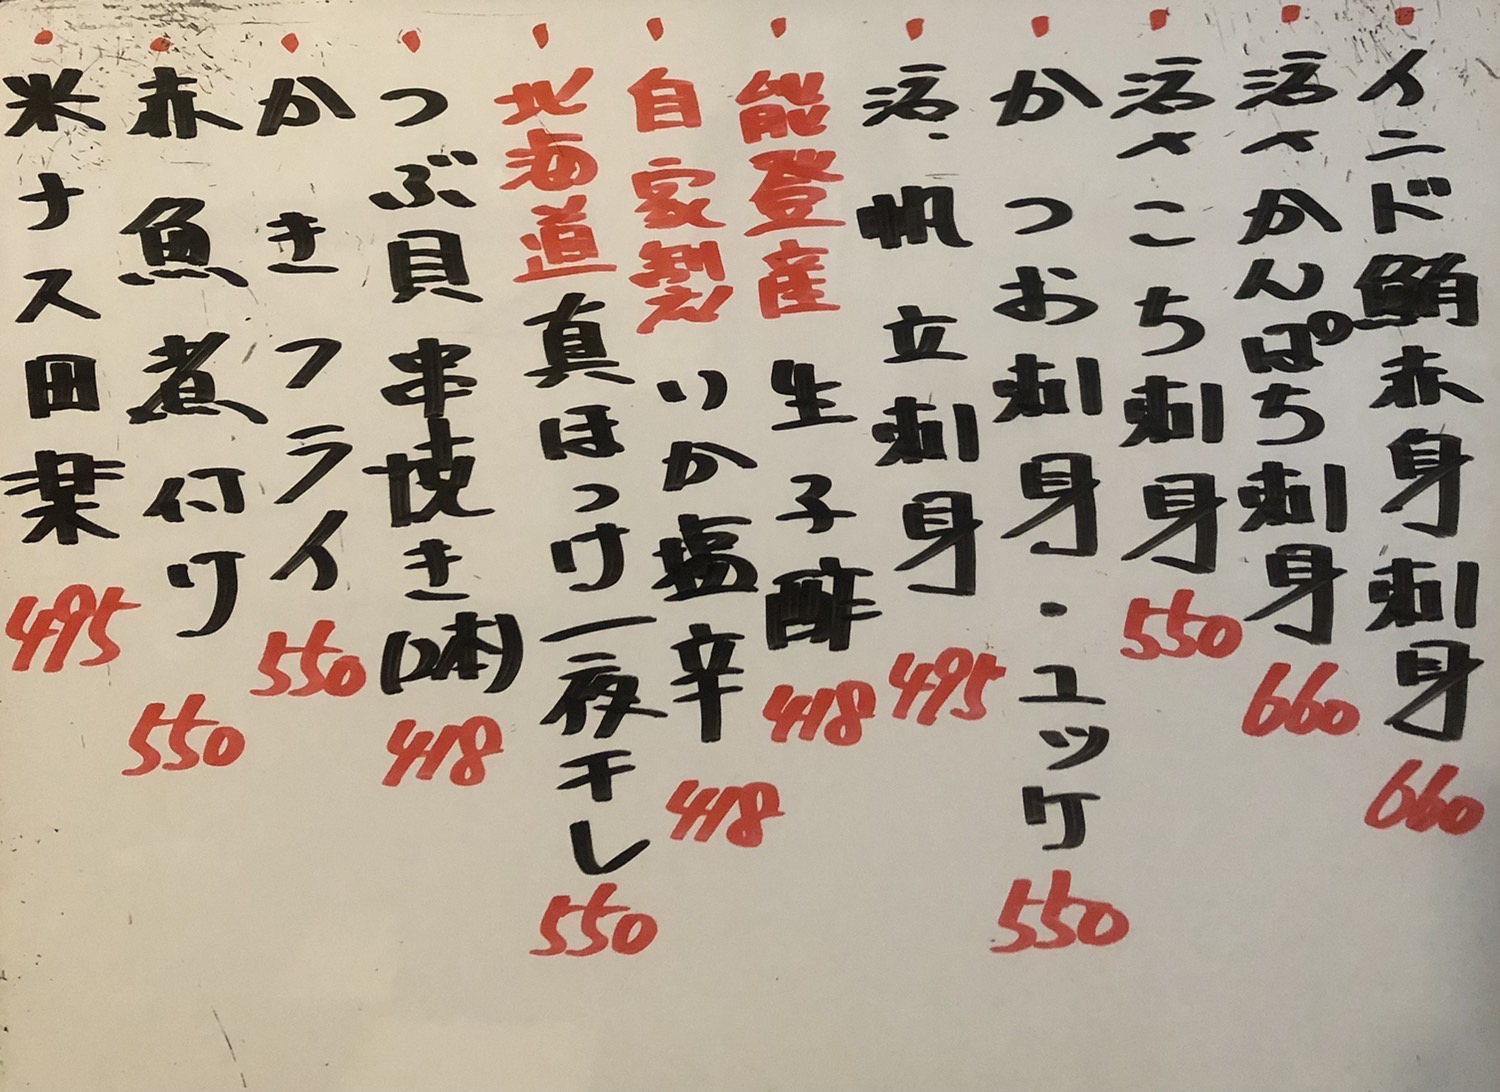 インド鮪赤身刺身 660
活〆かんぱち刺身 660
活〆こち刺身 550
かつお刺身・ユッケ 550
活帆立刺身 495
能登産 生子酢 418
自家製 いか塩辛 418
北海道 真ほっけ一夜干し 550
つぶ貝串焼き(2本) 418
かきフライ 550
赤魚煮付け 550
米ナス田楽 495